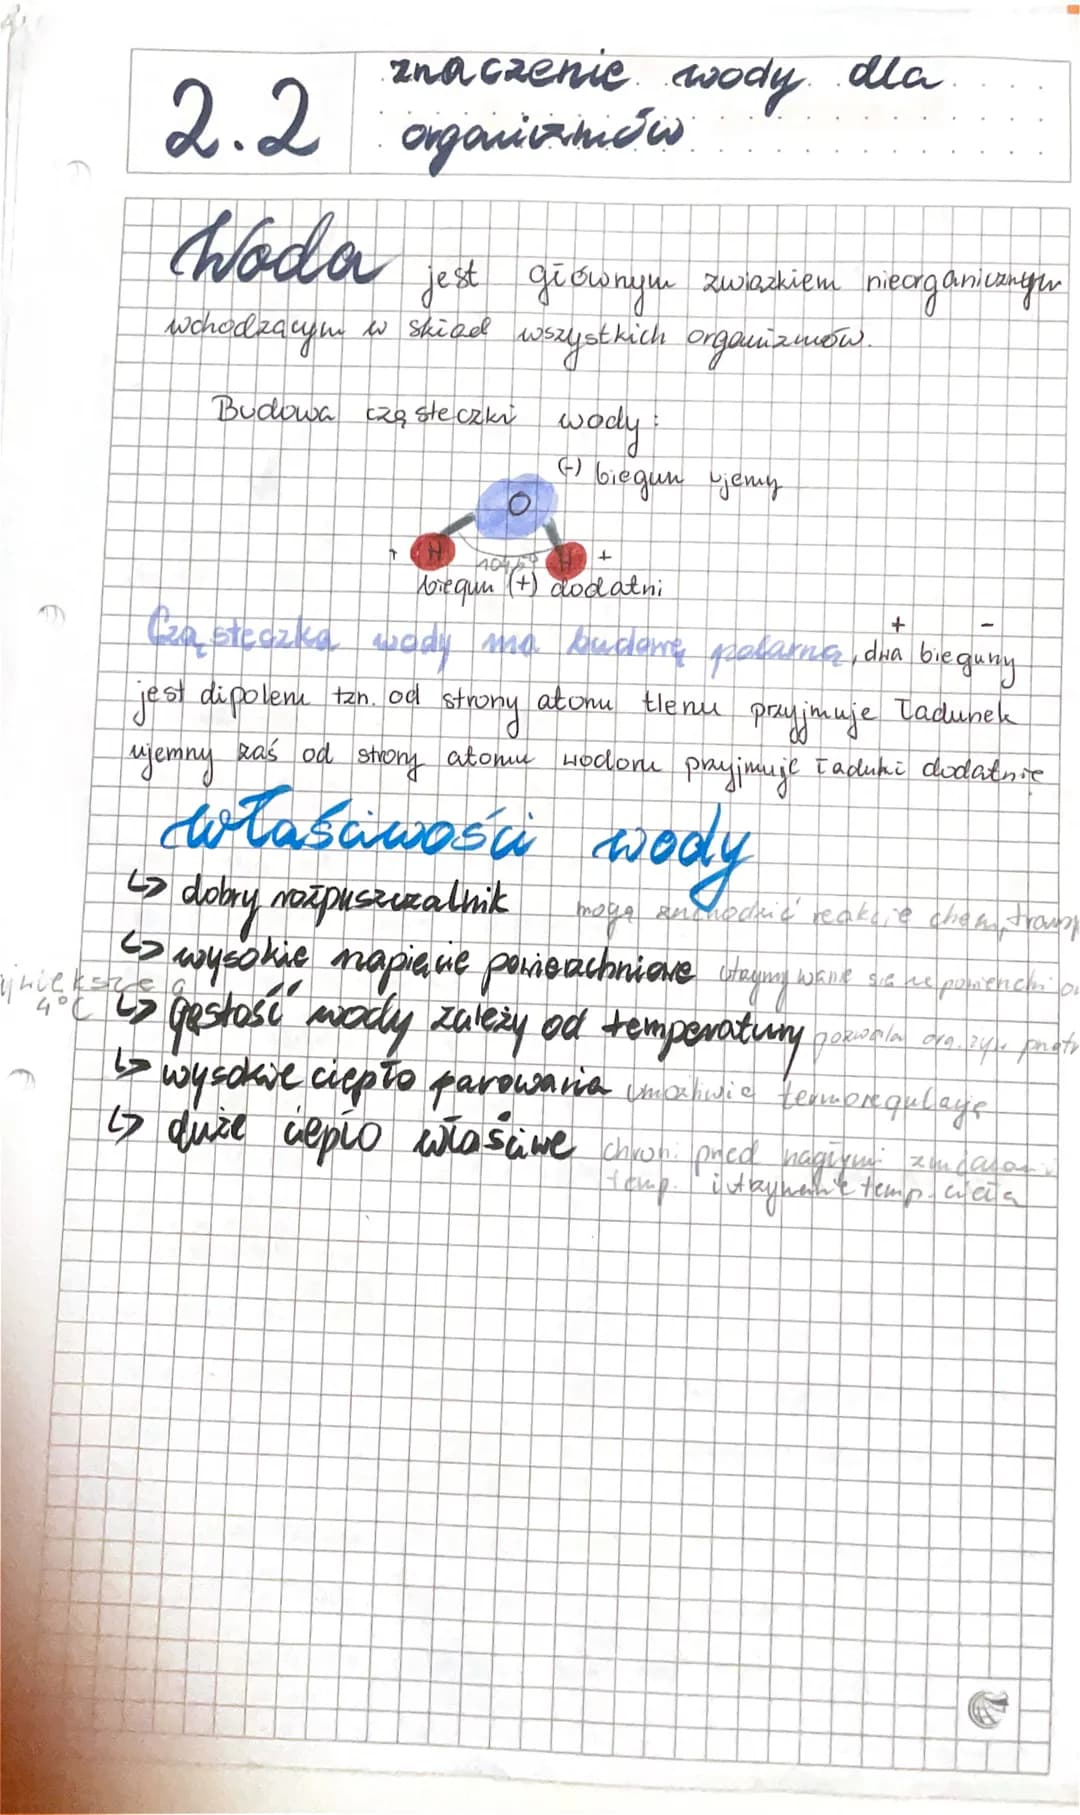 2.2
znaczenie wody dla
organizmów
Woda jest głównym związkiem nieorganicznym
wchodzącym w skład wszystkich organizmów.
Budowa cząsteczki wody:
(-) biegun ujemy
O
+ H H +
104,5°
biegun (+) dodatni
+ -
Cząsteczka wody ma budowę polarną, dwa bieguny
jest dipolem tzn. od strony atomu tlenu przyjmuje ładunek
ujemny zaś od strony atomu wodoru przyjmuje ładuki dodatnie
właściwości wody
↳ dobry rozpuszczalnik mogą zachodzić reakcje chem,
↳ wysokie napięcie powierzchniowe utrzymywanie się na powierzchni
4°C ↳ gęstość wody zależy od temperatury pozwala org.
↳ wysokie ciepło parowania umożliwia termoregulację
↳ duże ciepło właściwe chroni przed nagłymi zmianami
temp. i utrzymanie temp. ciała